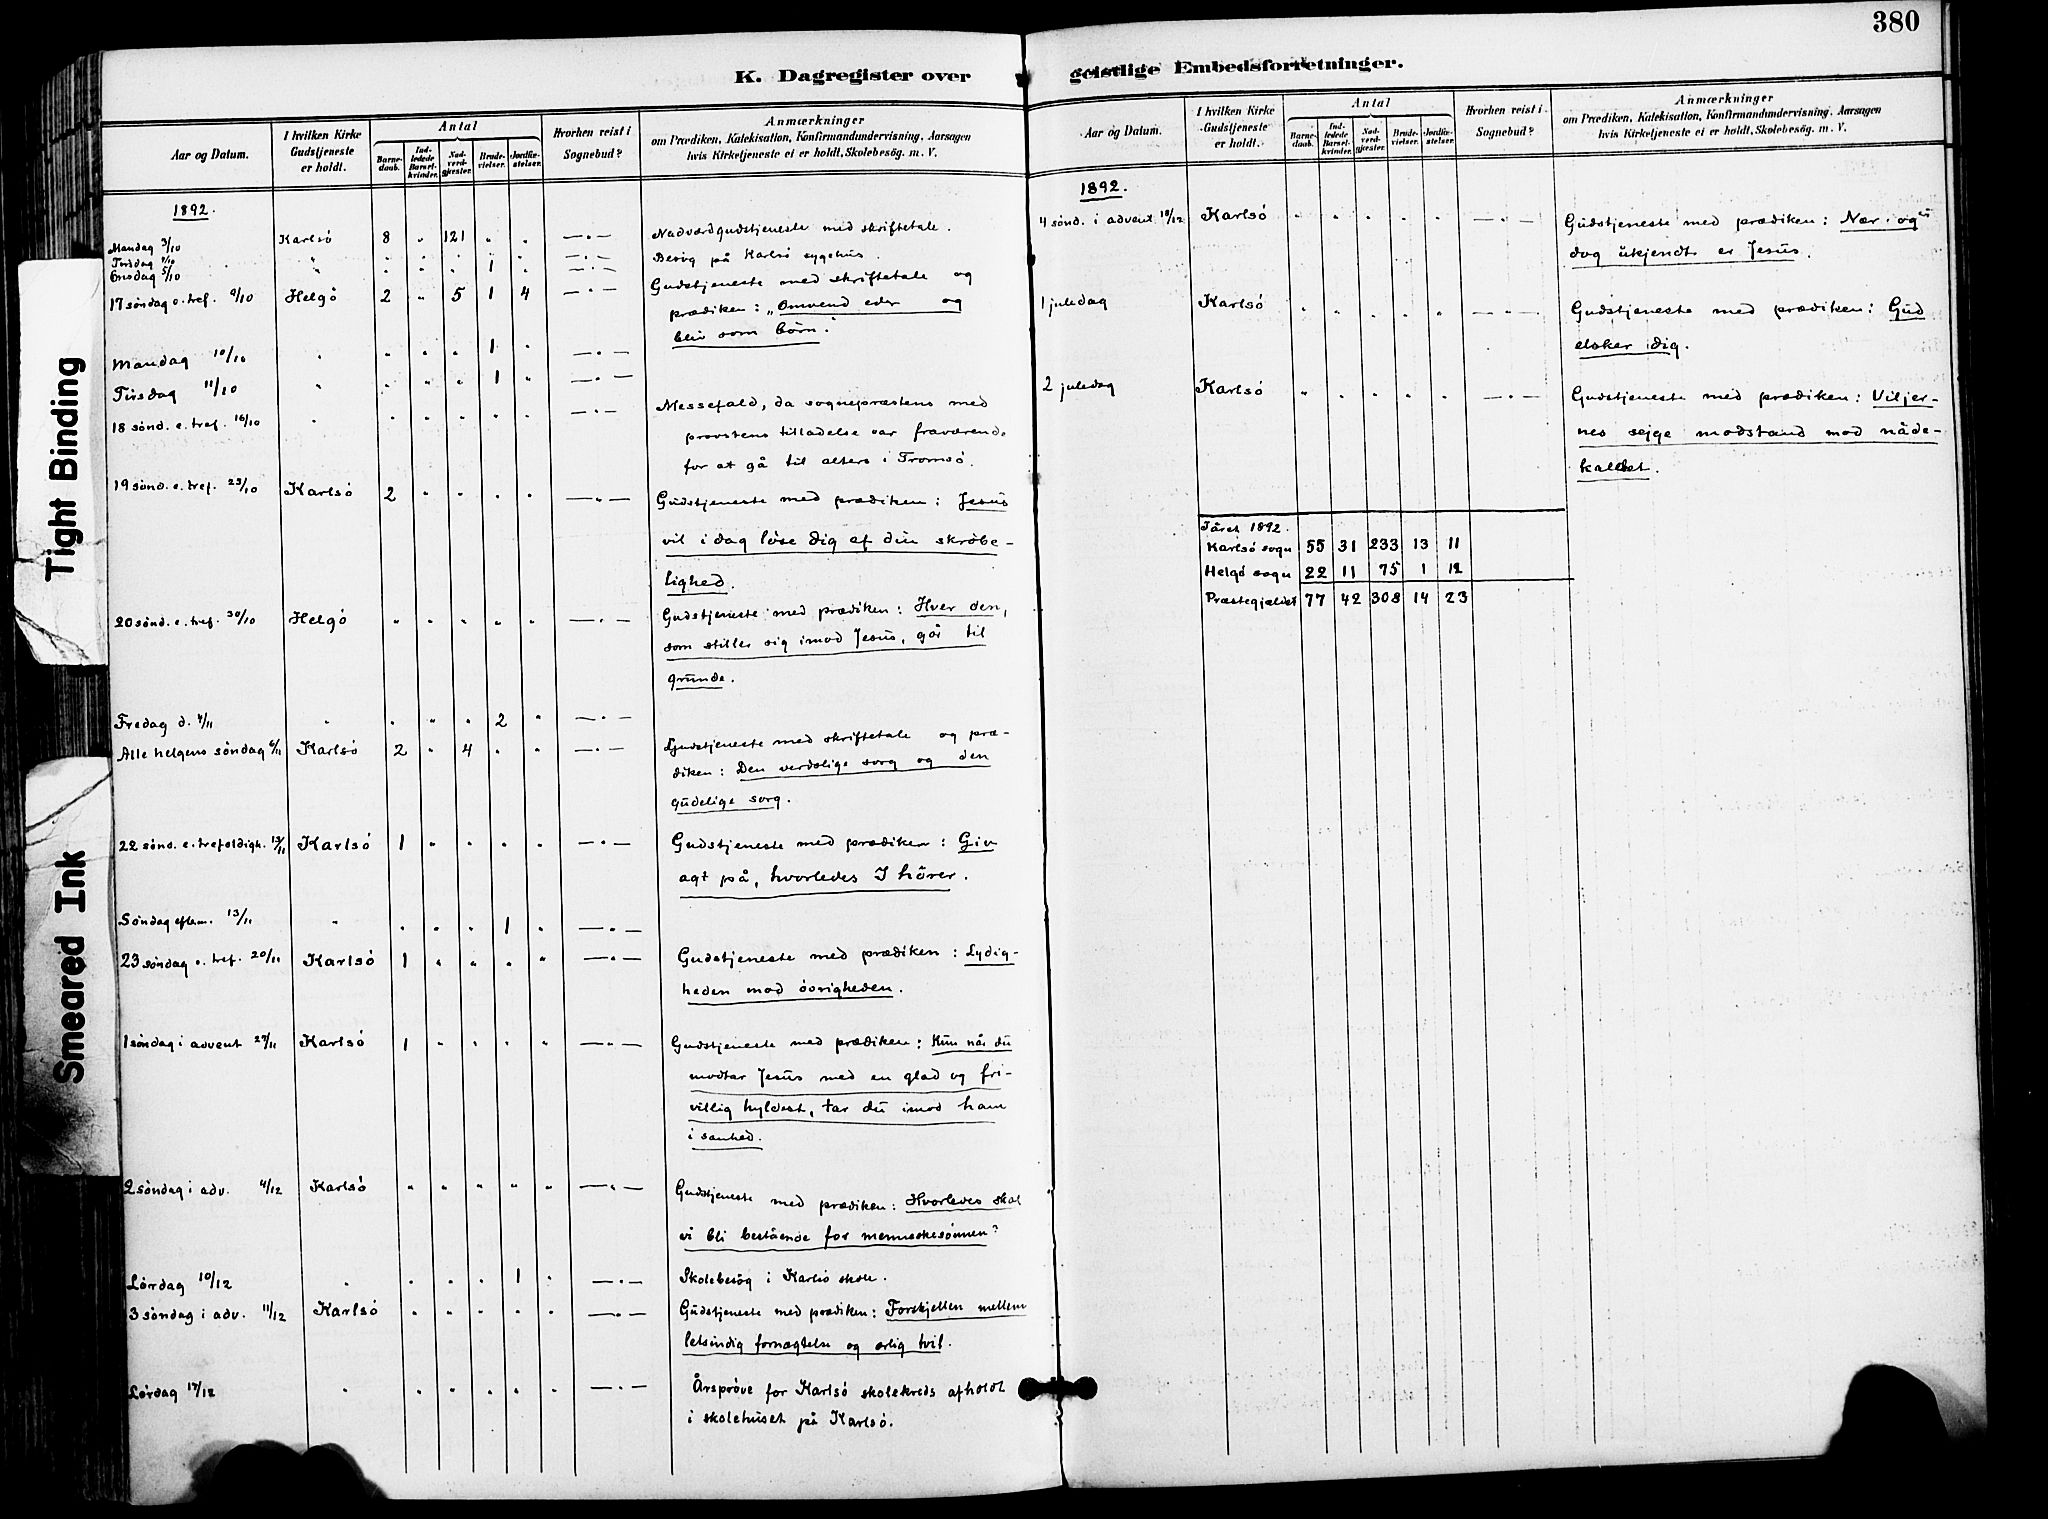 380
K. Dagregister over geistlige Embedsforretninger.
Tight Binding
Smeared Ink
Aar og Datum.
I hvilken Kirke Gudstjeneste er holdt.
Antal
Barnedaab.
Indledede Barselkvinder.
Nadverdgjæster.
Brudevielser.
Jordfæstelser.
Hvorhen reist i Sognebud?
Anmærkninger
om Prædiken, Katekisation, Konfirmandundervisning, Aarsagen
hvis Kirketjeneste ei er holdt, Skolebesög. m. V.
1892.
Mandag 3/10 Karlsö 8 " 121 " " — " — Nadverdgudstjeneste med skriftetale.
Tirsdag 4/10 " " " " " — " — Besög på Karlsö sygehus.
Onsdag 5/10 " " " " 1 " — " —
17 söndag e. tref. 9/10 Helgö 2 " 5 1 4 — " — Gudstjeneste med skriftetale og
prædiken: „Omvend eder og
bliv som börn."
Mandag 10/10 " " " " 1 " — " —
Tirsdag 11/10 " " " " 1 " — " —
18 sönd. e. tref. 16/10 " " " " " " — " — Messefald, da sognepræstens med
provstens tilladelse var fraværende
for at gå til alters i Tromsö.
19 sönd. e. tref. 23/10 Karlsö 2 " " " " — " — Gudstjeneste med prædiken: Jesus
vil i dag löse dig af din skröbe-
lighed.
20 sönd. e. tref. 30/10 Helgö " " " " " — " — Gudstjeneste med prædiken: Hver den,
som stiller sig imod Jesus, går til
grunde.
Fredag d. 4/11 " " " " 2 " — " —
Alle helgens söndag 6/11 Karlsö 2 " 4 " " — " — Gudstjeneste med skriftetale og præ-
diken: Den verdslige sorg og den
gudelige sorg.
22 sönd. e. trefoldigh. 13/11 Karlsö 1 " " " " — " — Gudstjeneste med prædiken: Giv
agt på, hvorledes I hörer.
Söndag efterm. 13/11 " " " " 1 " — " —
23 söndag e. tref. 20/11 Karlsö 1 " " " " — " — Gudstjeneste med prædiken: Lydig-
heden mod övrigheden.
1 söndag i advent 27/11 Karlsö 1 " " " " — " — Gudstjeneste med prædiken: Kun når du
modtar Jesus med en glad og fri-
villig hyldest, tar du imod ham
i sanhed.
2 söndag i adv. 4/12 Karlsö " " " " " — " — Gudstjeneste med prædiken: Hvorledes skal
vi bli bestående for menneskesönnen?
Lördag 10/12 " " " " 1 " — " — Skolebesög i Karlsö skole.
3 söndag i adv. 11/12 Karlsö " " " " " — " — Gudstjeneste med prædiken: Forskjellen mellem
letsindig fornægtelse og ærlig tvil.
Lördag 17/12 " " " " " " — " — Årspröve for Karlsö skolekreds afholdt
i skolehuset på Karlsö.
Aar og Datum.
I hvilken Kirke Gudstjeneste er holdt.
Antal
Barnedaab.
Indledede Barselkvinder.
Nadverdgjæster.
Brudevielser.
Jordfæstelser.
Hvorhen reist i Sognebud?
Anmærkninger
om Prædiken, Katekisation, Konfirmandundervisning, Aarsagen
hvis Kirketjeneste ei er holdt, Skolebesög. m. V.
1892.
4 sönd. i advent 18/12 Karlsö " " " " " — " — Gudstjeneste med prædiken: Nær og
dog ukjendt er Jesus.
1 juledag Karlsö " " " " " — " — Gudstjeneste med prædiken: Gud
elsker dig.
2 juledag Karlsö " " " " " — " — Gudstjeneste med prædiken: Viljer-
nes sejge modstand mod nåde-
kaldet.
I året 1892.
Karlsö sogn 55 31 233 13 11
Helgö sogn 22 11 75 1 12
Præstegjældet 77 42 308 14 23